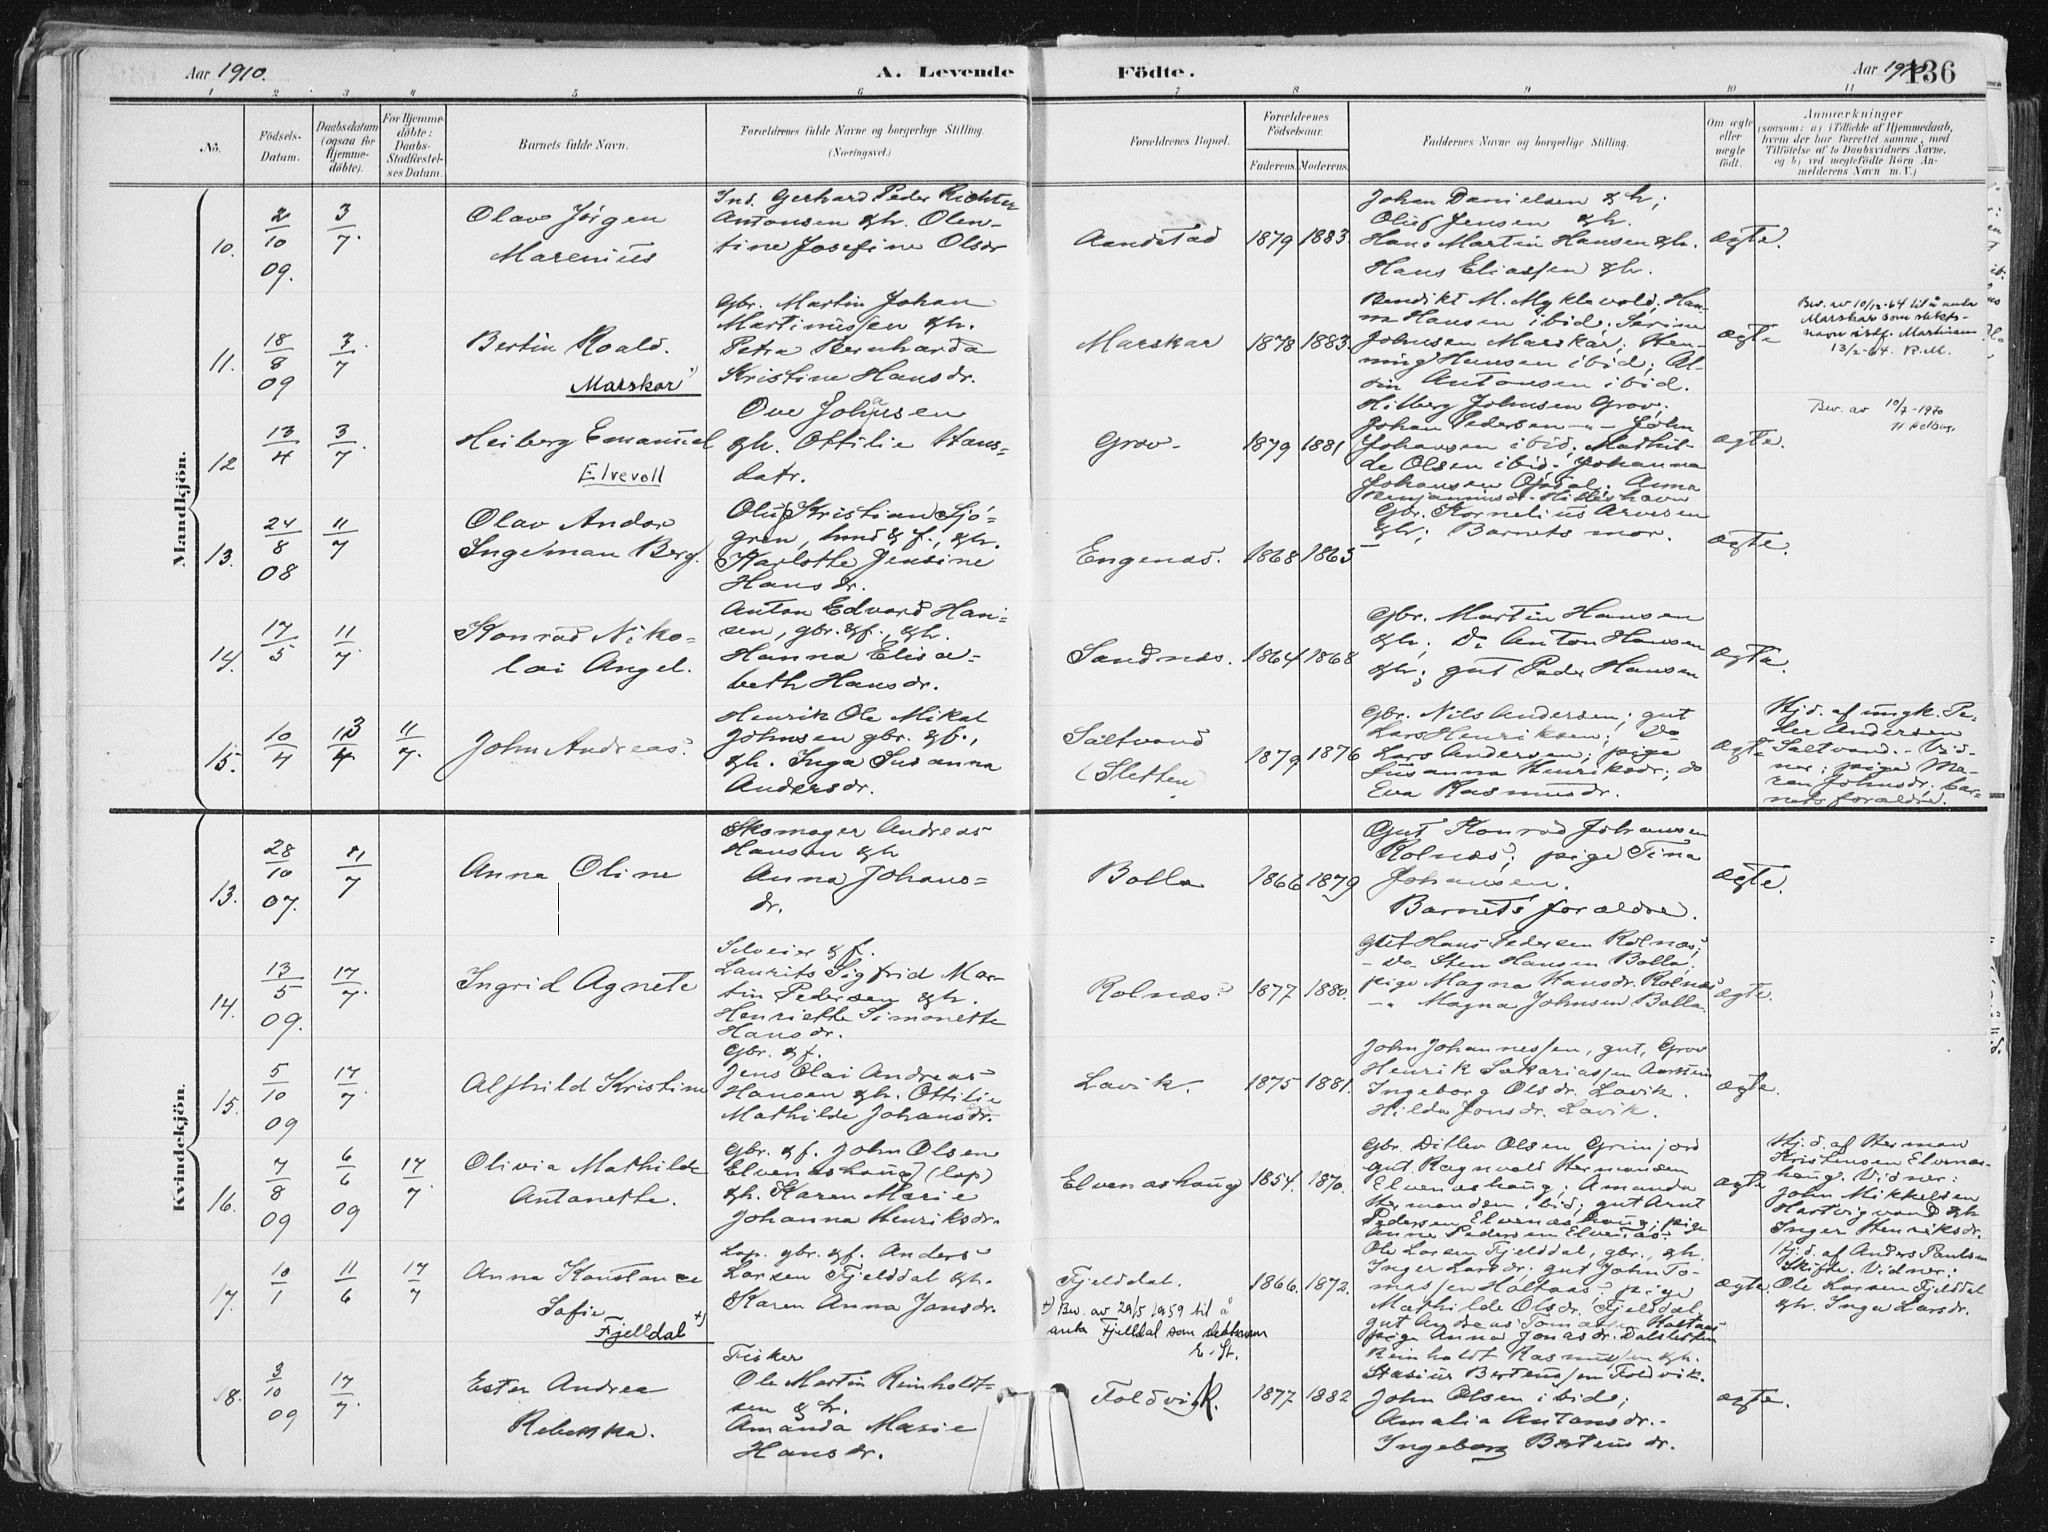 Aar 1910.
A. Levende
Födte.
Aar 1910.
136
1 2 3 4 5 6 7 8 9 10 11
No.
Födsels-
Datum.
Daabsdatum
(ogsaa for
Hjemme-
döbte).
For Hjemme-
döbte:
Daabs-
Stadfæstel-
ses Datum.
Barnets fulde Navn.
Forældrenes fulde Navne og borgerlige Stilling.
(Næringsvei.)
Forældrenes Bopæl.
Forældrenes
Födselsaar.
Faderens.
Moderens.
Faddernes Navne og borgerlige Stilling.
Om ægte
eller
uægte
födt.
Anmærkninger
(saasom: a) i Tilfælde af Hjemmedaab,
hvem der har forrettet samme, med
Tilföielse af to Daabsvidners Navne,
og b) ved uægtefödte Börn An-
melderens Navn m. V.)
Mandkjön.
10.
2/10 09.
3/7.
Olav Jörgen
Marenius
Ins. Gerhard Peder Richter
Antonsen & h. Olen-
tine Josefine Olsdr
Aandstad
1879
1883.
Johan Danielsen & h;
Oluf Jensen & h.
Hans Martin Hansen & h.
Hans Eliassen & h.
ægte.
11.
18/8 09
3/7
Bertin Roald.
Marskar
Gbr. Martin Johan
Martinussen & h.
Petra Bernharda
Kristine Hansdr.
Marskar
1878
1883.
Bendikt M. Myklevold; Han-
na Hansen ibid; Serine
Johnsen Marskar; Hen-
ning Hansen ibid; Al-
Antonsen ibid.
ægte
Bev. av 10/12-64 til å anta
Marskar som slekts-
navn istf. Martinsen
13/2-64. R.M.
12
13/4
3/7.
Heiberg Emanuel
Elvevoll
Ove Johansen
& h. Ottilie Hans-
datr.
Grov
1879
1881
Hilberg Johnsen Grov;
Johan Pedersen -"- John
Johansen ibid; Mathil-
de Olsen ibid; Johanna
Johansen; Anna
Benjaminsdr. Hilleshavn
ægte.
Bev. av 10/7-1970
13.
24/8 08
11/7
Olav Andor
Ingeman Berg.
Oluf Kristian Sjö-
gren, & f., & h.
Karlotte Jensine
Hansdr.
Engenæs.
1868
1865
Gbr. Kornelius Arvesen
& h; Barnets mor.
ægte.
14.
17/5
11/7.
Konrad Niko-
lai Angel.
Anton Edvard Han-
sen, gbr. & f., & h.
Hanna Elisa-
beth Hansdr.
Sandnæs.
1864
1868
Gbr. Martin Hansen
& h; Do Anton Hansen
& h; gut Peder Hansen
ægte.
15.
10/4
13/4
11/7.
John Andreas.
Henrik Ole Mikal
Johnsen gbr. & f.,
& h. Inga Susanna
Andersdr.
Saltvand
(Sletten)
1879
1876
Gbr. Nils Andersen; gut
Lars Henriksen; Do
Lars Andersen; pige
Susanna Henriksdr; do
Eva Rasmusdr.
ægte
Hj. d. af ungk. Pe-
der Andersen
Saltvand. Vid-
ner: pige Ma-
ren Johnsdr; bar-
nets forældre.
Kvindekjön.
13.
28/10 07.
11/7
Anna Oline
Skomager Andreas
Hansen & h
Anna Johans-
dr.
Bolla
1866
1879
Gut Konrad Johansen
Rolnæs; pige Tina
Johansen.
Barnets forældre.
ægte.
14.
13/5 09.
17/7.
Ingrid Agnete
Selveier & f.
Laurits Sigfrid Mar-
tin Pedersen & h.
Henriette Simonette
Hansdr.
Rolnæs.
1877
1880.
Gut Hans Pedersen Rolnæs;
- Do - Sten Hansen Bolla;
pige Magna Hansdr. Rolnæs
-"- Magna Johnsen Bolla.
ægte.
15.
5/10 09
17/7.
Alfhild Kristine
Gbr. & f.
Jens Olai Andreas
Hansen & h. Ottilie
Mathilde Johansdr.
Lavik.
1875
1881.
John Johannessen, gut, Grov
Henrik Sakariassen
Ingeborg Olsdr. Lavik.
Hilda Jonsdr. Lavik.
ægte.
16.
7/8 09
6/6 09
17/7.
Olivia Mathilde
Antanette.
Gbr. & f. John Olsen
Elvenæshaug (lap)
& h. Karen Marie
Johanna Henriksdr.
Elvenæshaug
1854.
1870.
Gbr. Ditlev Olsen Grinjord
gut Ragnvald Hermansen
Elvenæshaug; Amanda
Hermansen ibid; gut Arnt
Pedersen Elvenæshaug; pige
Anne Pedersen Elvenæs.
ægte
Hj. d. af Herman
Kristensen Elvenæs-
haug. Vidner:
John Mikkelsen
Hartvigvand & h
Inger Henriksdr.
17.
10/1
11/6
17/7
Anna Konstance
Sofie
Fjelldal +)
Lap. gbr. & f. Anders
Larsen Fjelddal & h.
Karen Anna Jonsdr.
Fjelddal.
+) Bev. av 29/5 1959 til å
anta Fjelldal som slektsnavn
E. St.
1866.
1872.
Ole Larsen Fjelddal, gbr., & h.
Inger Larsdr; gut John To-
massen Holtaas; pige
Mathilde Olsdr. Fjelddal
gut Andreas Tomassen Holtaas
pige Anna Jonasdr. Dalsletten
ægte.
Hj. d. af Anders Paulsen
Skifte. Vidner:
Ole Larsen Fjelddal
& h. Inger Larsdr.
18.
3/10 09
17/7.
Ester Andrea
Rebekka.
Fisker
Ole Martin Reinholdt-
sen & h.
Amanda Marie
Hansdr.
Foldvik.
1877
1882
Reinholdt Rasmussen & h.
Stasius Berteussen Foldvik.
John Olsen ibid;
Amalia Antonsdr.
Ingeborg Berteusdr.
ægte.